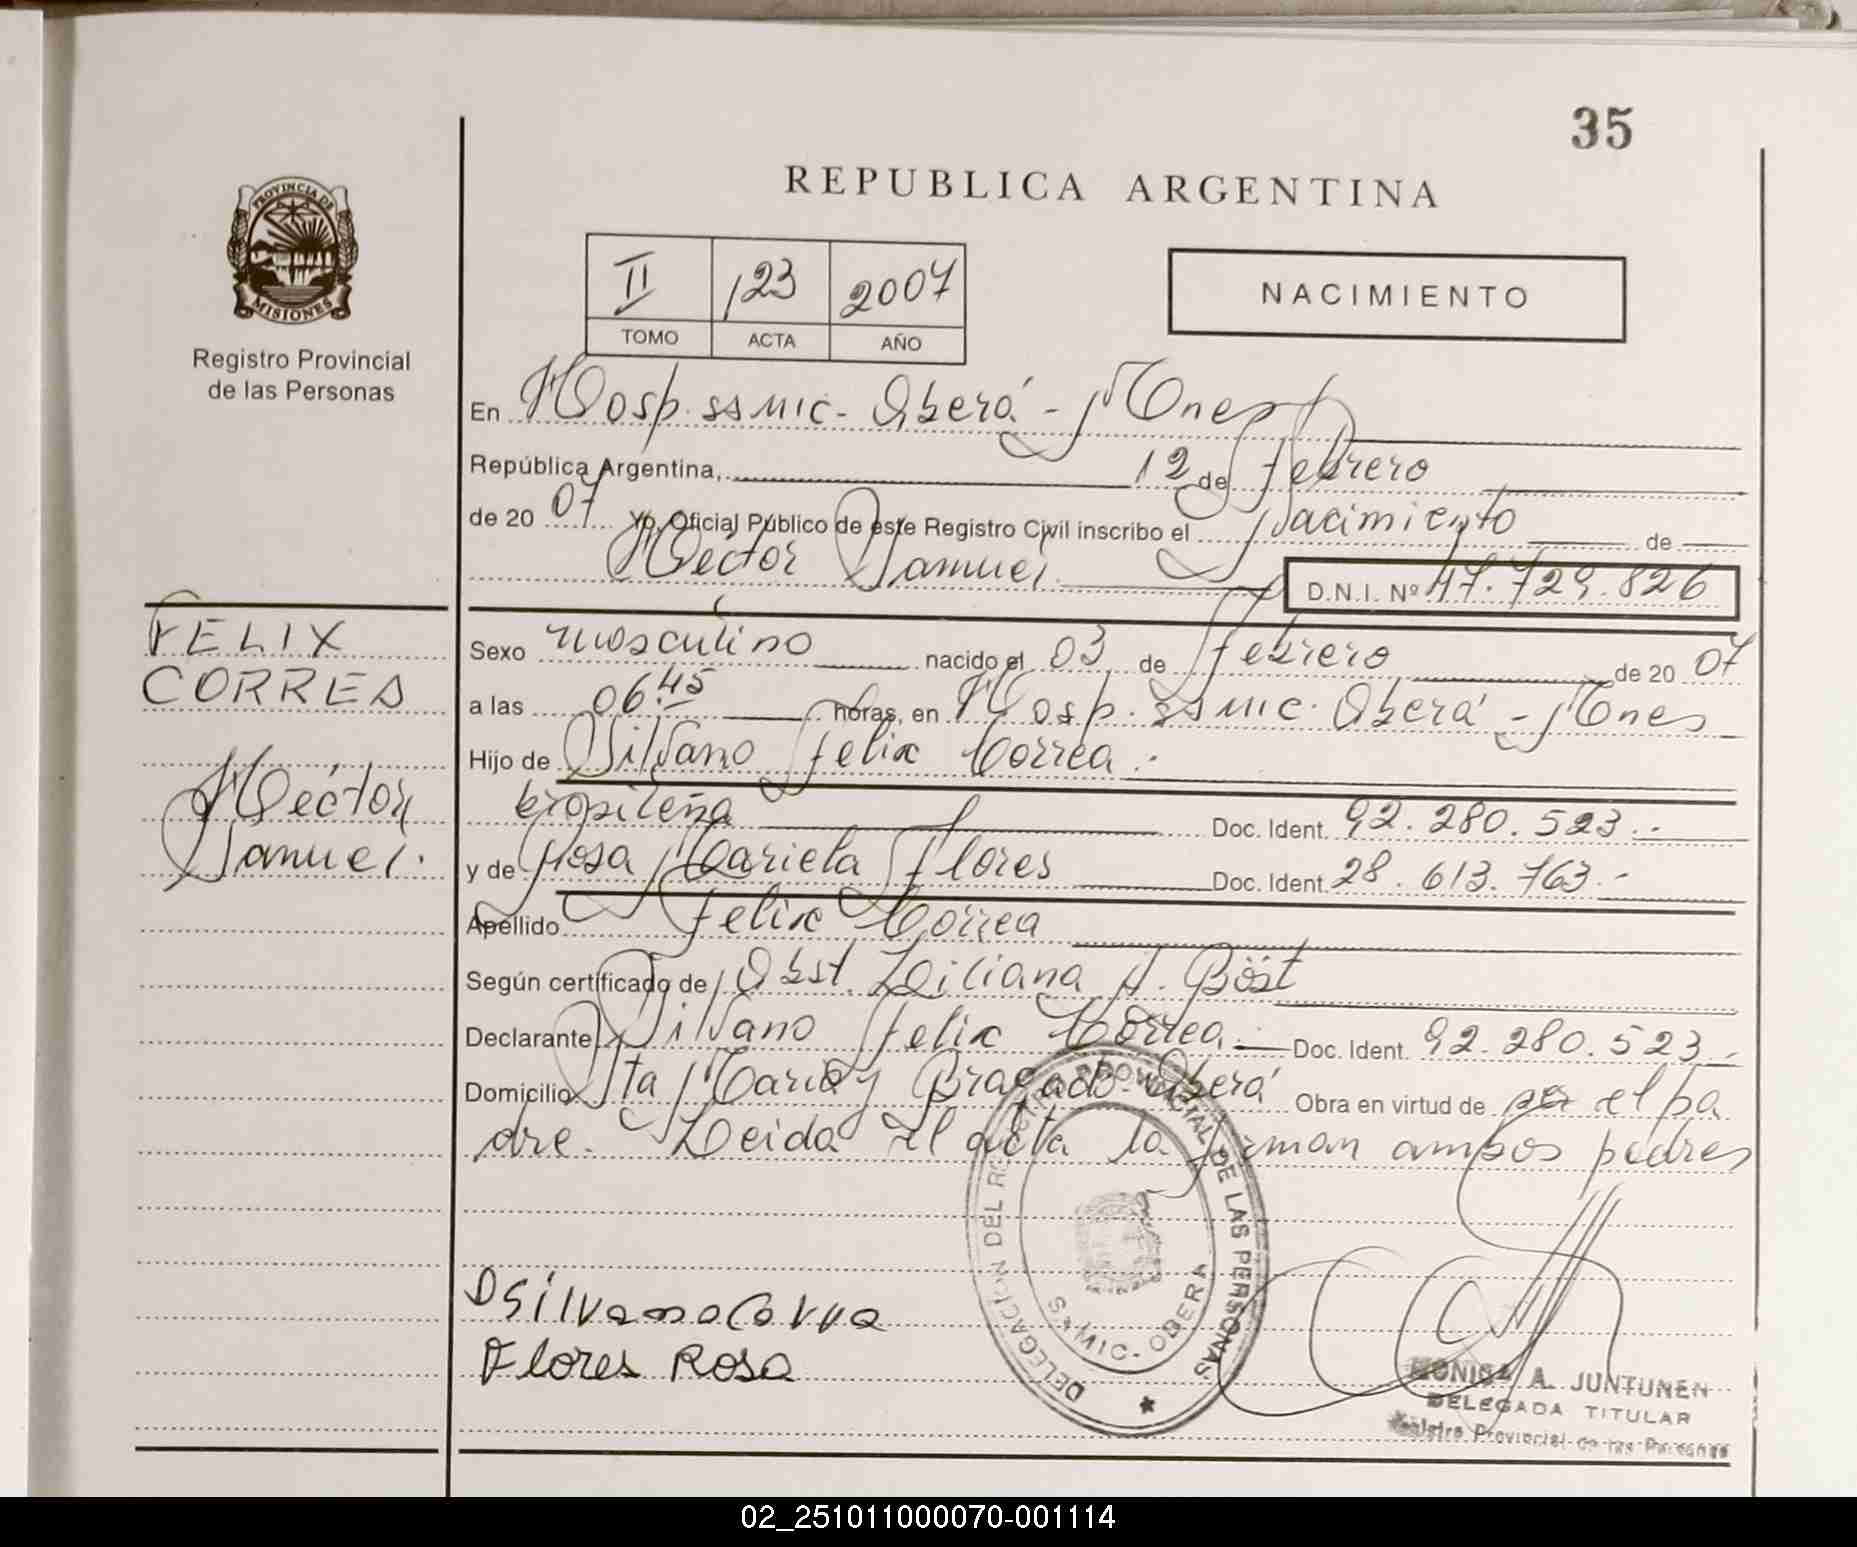 35
REPUBLICA ARGENTINA
PROVINCIA DE
MISIONES
Registro Provincial
de las Personas
II 123 2007
TOMO ACTA AÑO
NACIMIENTO
En Hosp. SSMIC - Oberá - Mnes
República Argentina, 12 de febrero
de 20 07 Yo, Oficial Público de este Registro Civil inscribo el Nacimiento de
Héctor Samuel.
D.N.I. Nº 47.729.826
FELIX
CORREA
Héctor
Samuel.
Sexo masculino nacido el 03 de febrero de 20 07
a las 06.45 horas, en Hosp. SSMIC. Oberá - Mnes
Hijo de Silvano Felix Correa.-
brasileña Doc. Ident. 92.280.523.-
y de Rosa Mariela Flores Doc. Ident. 28.613.763.-
Apellido Felix Correa
Según certificado de Obst. Liliana A. Böst
Declarante Silvano Felix Correa.- Doc. Ident. 92.280.523.-
Domicilio Sta María y Bragado-Oberá Obra en virtud de ser el pa
dre. Leida el acta la firman ambos padres
DELEGACION DEL REGISTRO PROVINCIAL DE LAS PERSONAS
SAMIC - OBERA
Flores Rosa
MONICA A. JUNTUNEN
DELEGADA TITULAR
Registro Provincial de las Personas
02_251011000070-001114